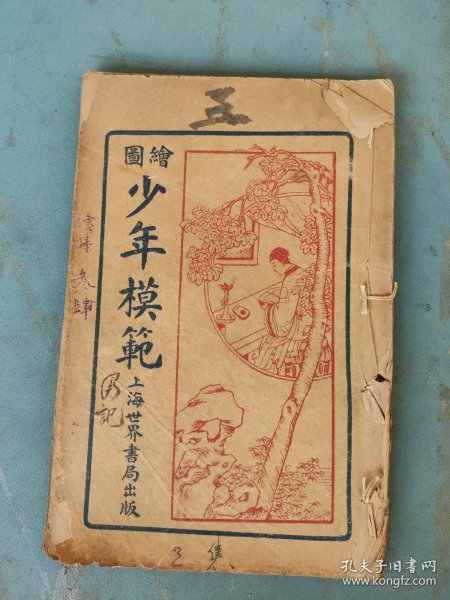 五
繪圖
少年模範
上海世界書局出版
乃記
集
孔夫子旧书网
www.kongfz.com